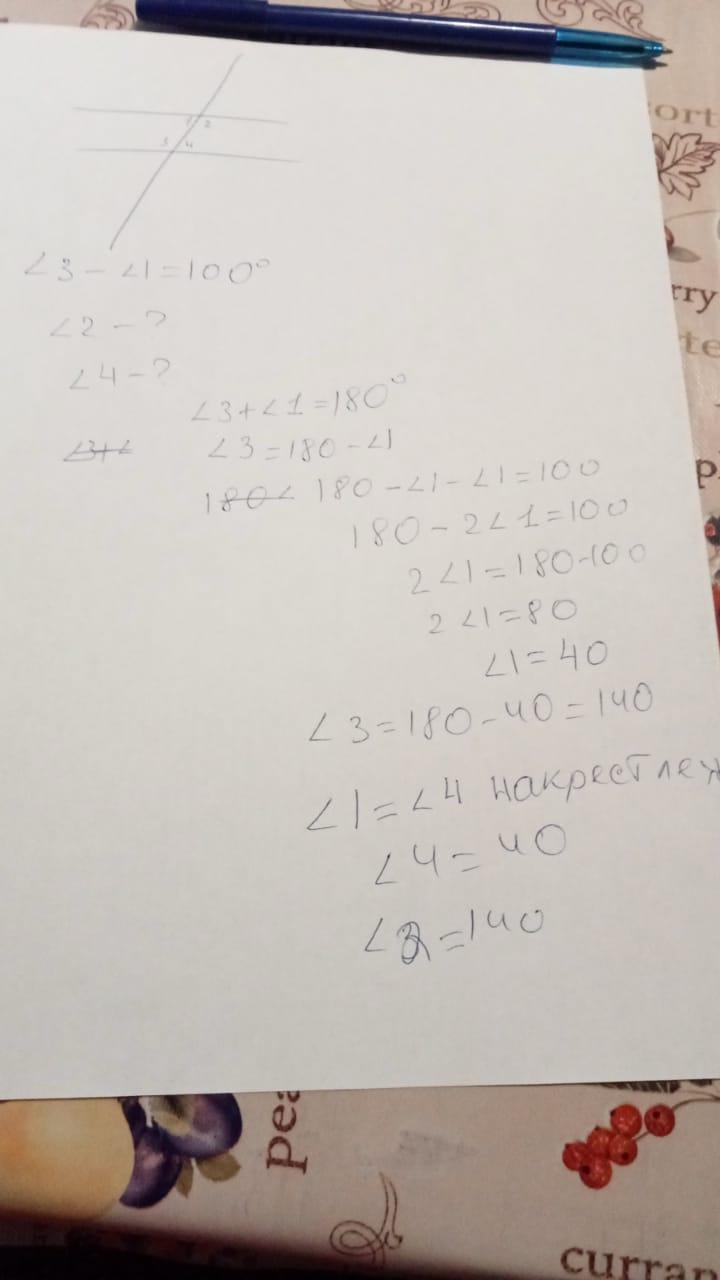 1 2
3 4
∠3 - ∠1 = 100°
∠2 - ?
∠4 - ?
∠3 + ∠1 = 180°
∠3+∠
∠3 = 180 - ∠1
180∠ 180 - ∠1 - ∠1 = 100
180 - 2∠1 = 100
2∠1 = 180-100
2∠1 = 80
∠1 = 40
∠3 = 180 - 40 = 140
∠1 = ∠4 накрест леж
∠4 = 40
∠2 = 140
ort
rry
te
pl
pea
curran